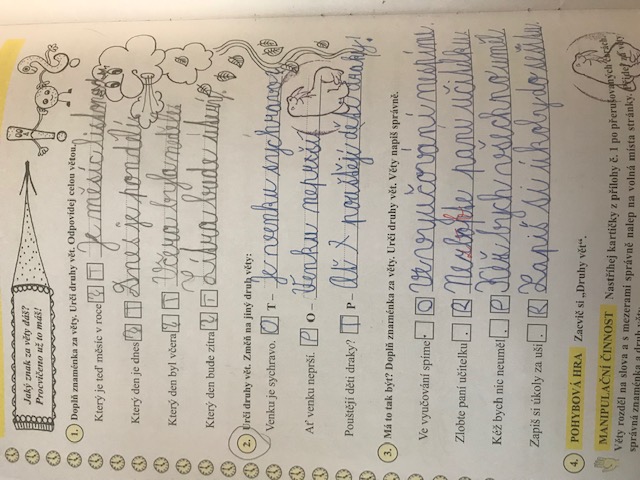 Jaký znak za věty dáš?
Procvičeno už to máš!
! ?
1. Doplň znaménka za věty. Urči druhy vět. Odpovídej celou větou.
Který je teď měsíc v roce ? T Je měsíc listopad.
Který den je dnes ? T Dnes je pondělí.
Který den byl včera ? T Včera byla neděle.
Který den bude zítra ? T Zítra bude úterý.
2. Urči druhy vět. Změň na jiný druh věty:
Venku je sychravo. O T – Je venku sychravo?
Ať venku neprší. P O – Venku neprší.
Pouštějí děti draky? T P – Ať pouštějí děti draky!
3. Má to tak být? Doplň znaménka za věty. Urči druhy vět. Věty napiš správně.
Ve vyučování spíme . O Ve vyučování nespíme.
Zlobte paní učitelku . R Nezlobte paní učitelku
Kéž bych nic neuměl . P Kéž bych všechno uměl
Zapiš si úkoly za uši . R Zapiš si úkoly do sešitu.
4. POHYBOVÁ HRA Zacvič si „Druhy vět“.
MANIPULAČNÍ ČINNOST Nastříhej kartičky z přílohy č. 1 po přerušovaných čarách.
Věty rozděl na slova a s mezerami správně nalep na volná místa stránky. Přidej za věty
správná znaménka a druh věty.